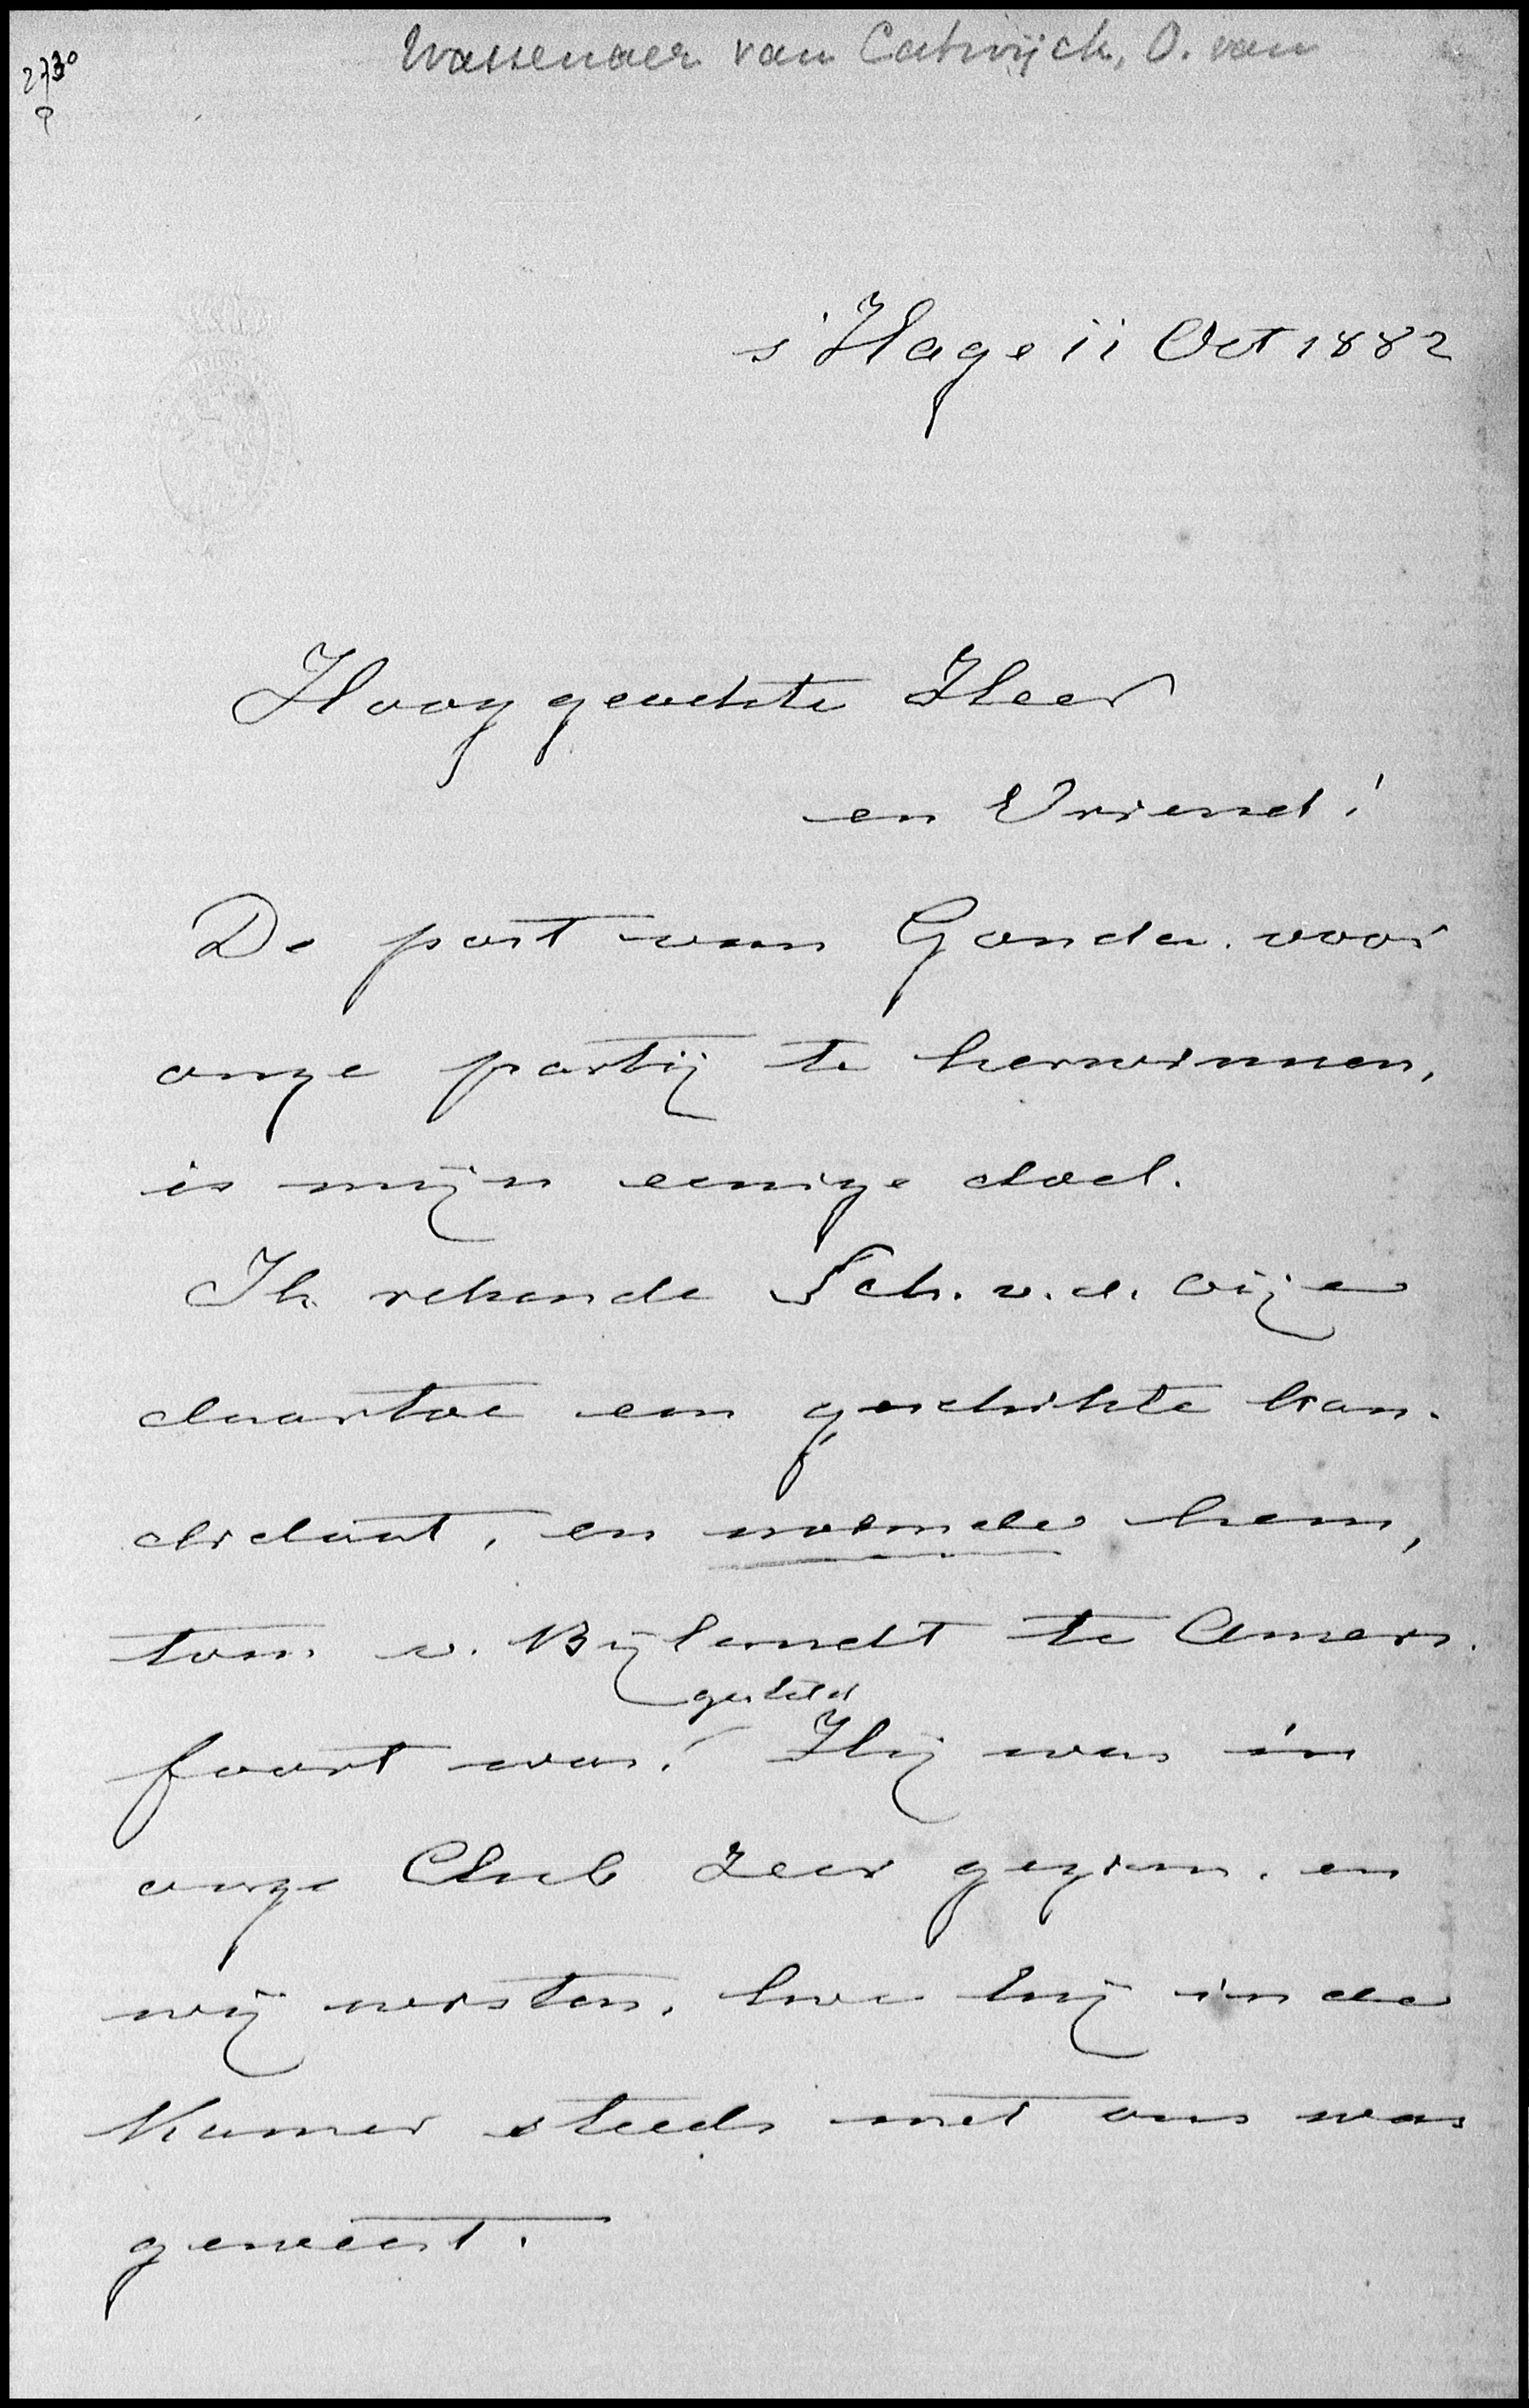 Wassenaer van Catwijck, O. van
2730
s'Hage 11 Oct 1882
Hooggeachte Heer
en Vriend!
De post van Gouda voor
onze partij te herwinnen,
is mijn eenige doel.
Ik rekende Sch. v. d. Oije
daartoe een geschikte kan-
didaat, en noemde hem,
toen v. Bijlandt te Amers-
gesteld
foort was! Hij was in
onze Club zeer gezien, en
wij wisten, hoe hij in de
Kamer steeds met ons was
geweest.